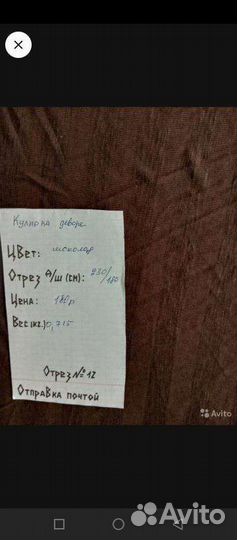 Кулирка деворе
Цвет: шоколад
Отрез д/ш (см): 230/180
Цена: 180р
Вес (кг.) 0,715
Отрез № 12
Отправка почтой
Avito
Avito